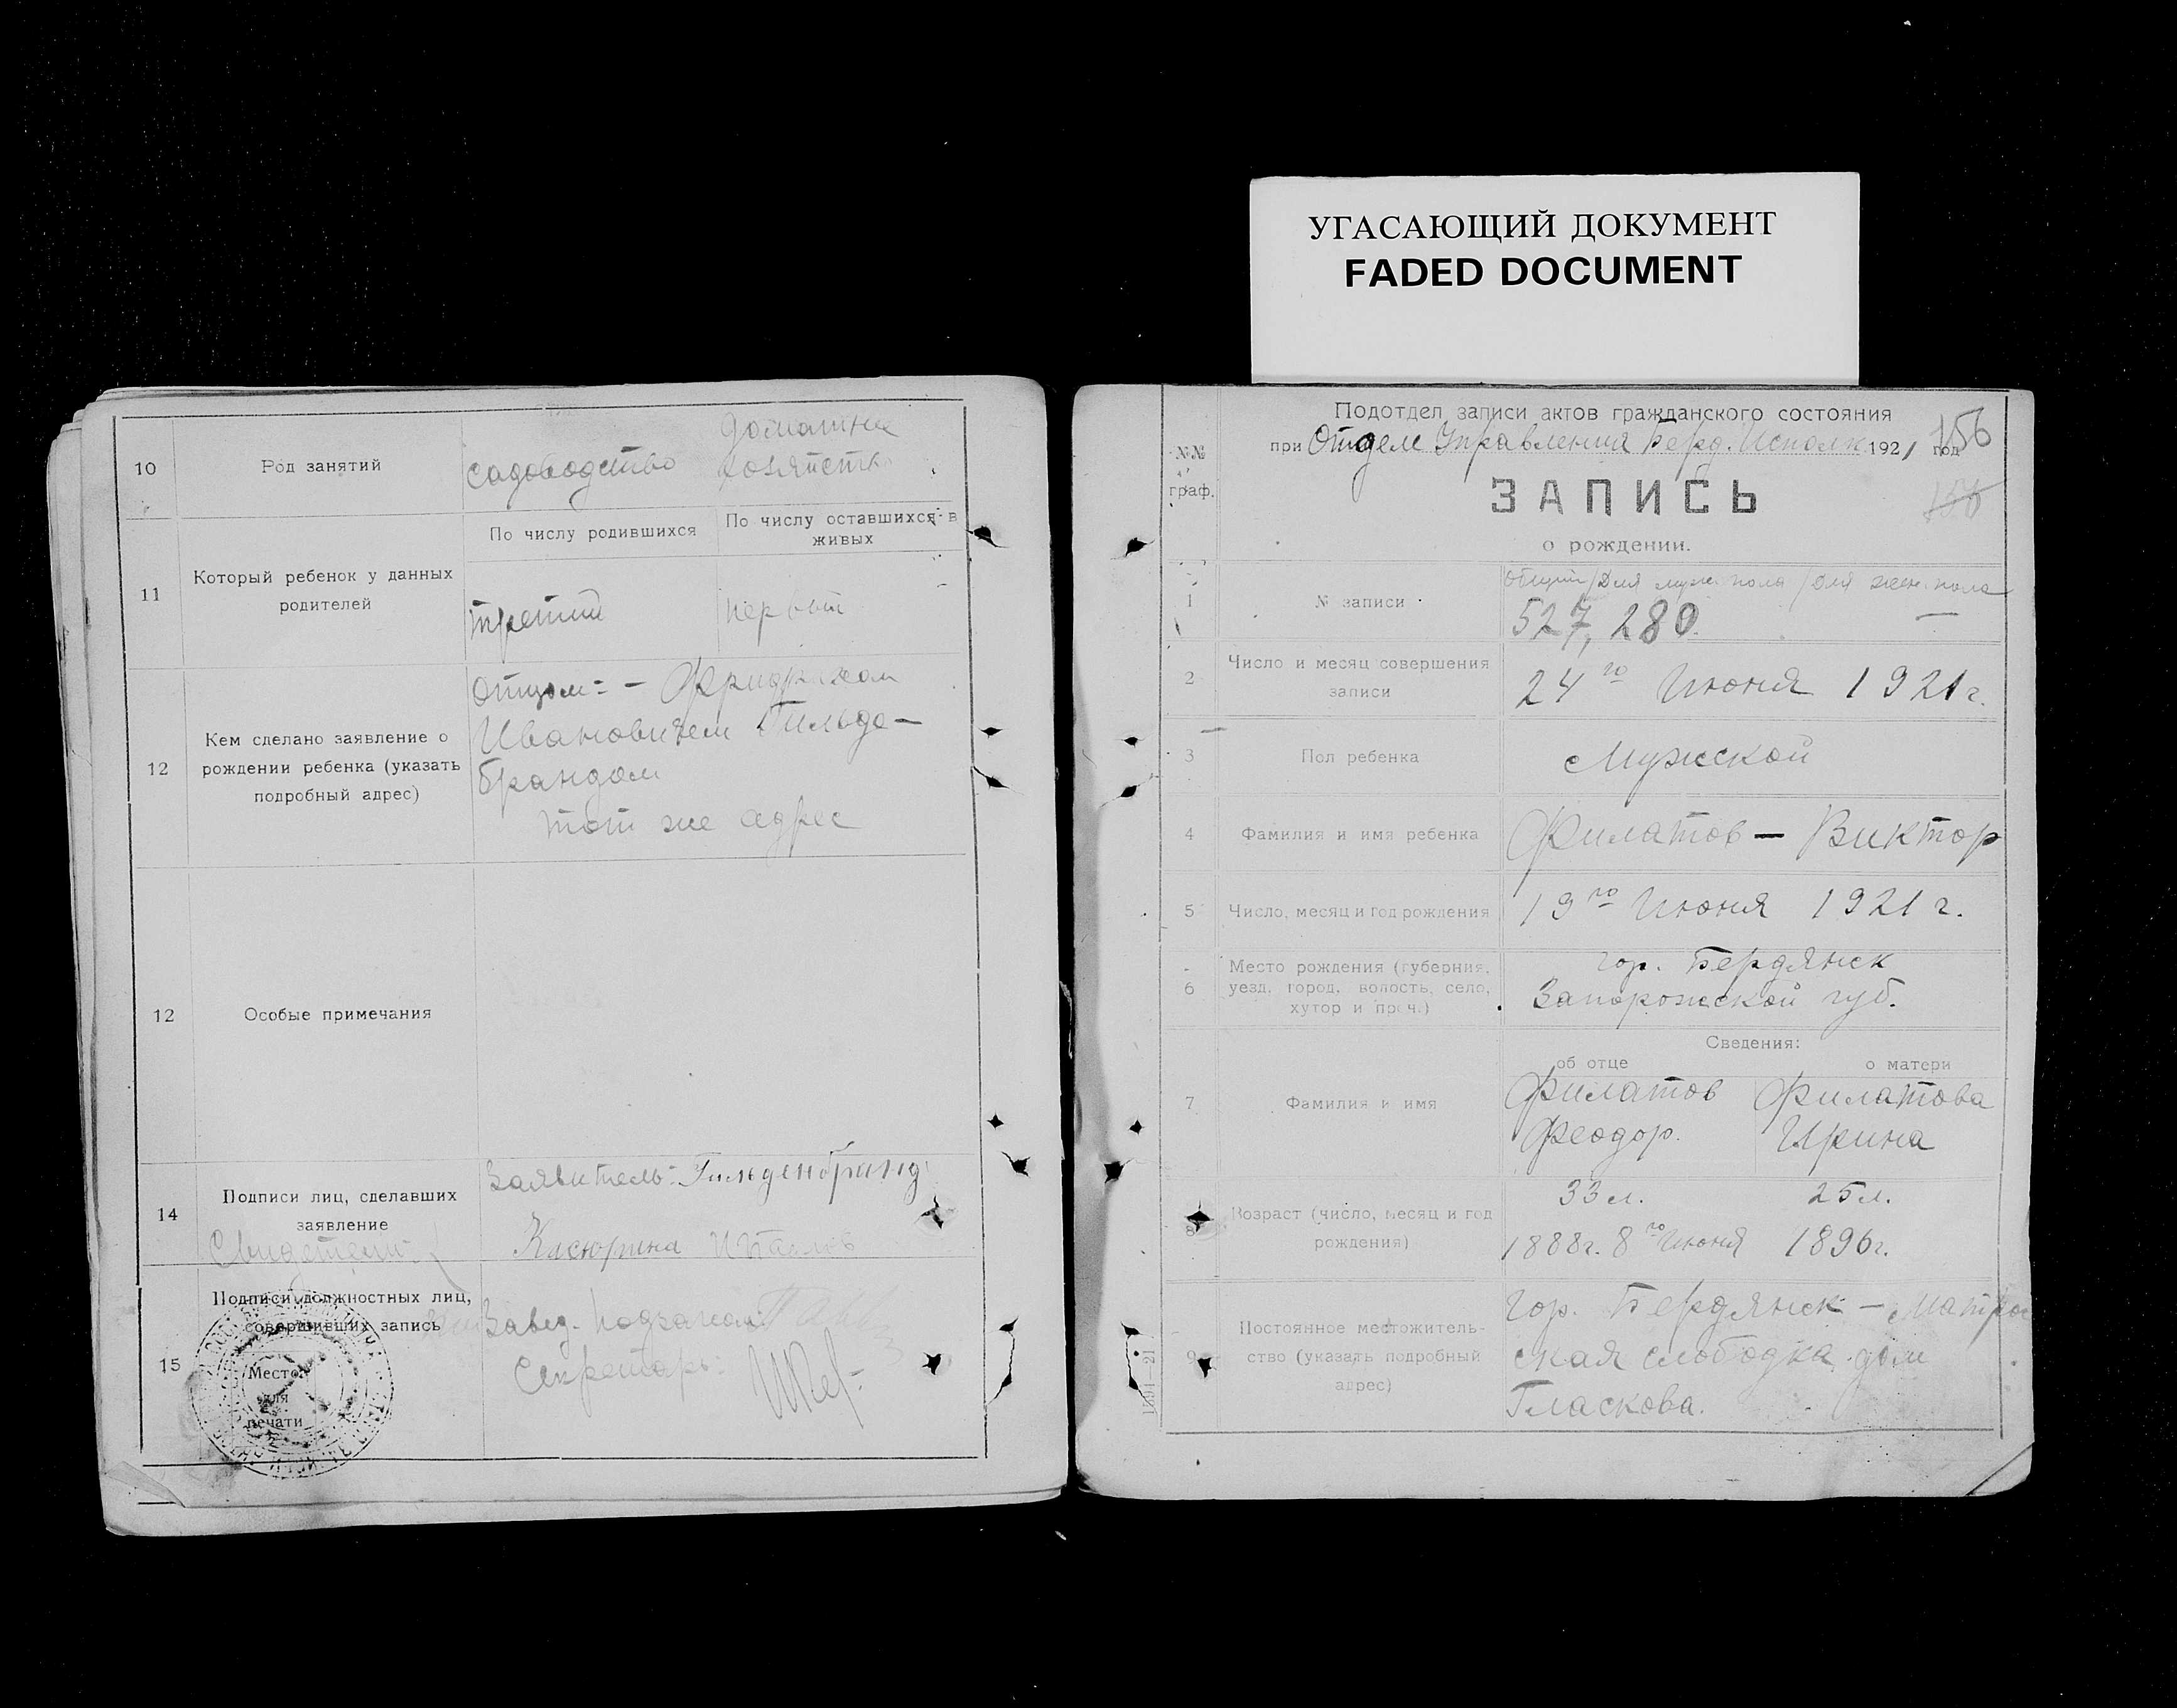 УГАСАЮЩИЙ ДОКУМЕНТ
FADED DOCUMENT
10
Род занятий
садоводство
домашнее
хозяйство
По числу родившихся
По числу оставшихся в
живых
11
Который ребенок у данных
родителей
третий
первый
12
Кем сделано заявление о
рождении ребенка (указать
подробный адрес)
Отцом: - Фридрихом
Ивановичем Гильде-
брандом
тот же адрес
12
Особые примечания
14
Подписи лиц, сделавших
заявление
Свидетели
Заявитель: Гильденбранд
15
Подписи должностных лиц,
совершивших запись
Место
для
печати
Завед. Подзагсом
Секретарь
№№
граф.
Подотдел записи актов гражданского состояния
при Отделе Управления Берд. Исполк. 1921 год
156
ЗАПИСЬ
о рождении.
1
№ записи
Общий / Для муж. пола / Для жен. пола
527, 280. —
2
Число и месяц совершения
записи
24го Июня 1921 г.
3
Пол ребенка
Мужской
4
Фамилия и имя ребенка
Филатов — Виктор
5
Число, месяц и год рождения
19го Июня 1921 г.
6
Место рождения (губерния,
уезд, город, волость, село,
хутор и проч.)
гор. Бердянск
Запорожской губ.
Сведения:
об отце
о матери
7
Фамилия и имя
Филатов
Феодор.
Филатова
Ирина
8
Возраст (число, месяц и год
рождения)
33 л.
25 л.
1888г. 8го Июня
1896г.
9
Постоянное местожитель-
ство (указать подробный
адрес)
Гор. Бердянск - Матрос
ская слободка дом
Гласкова.